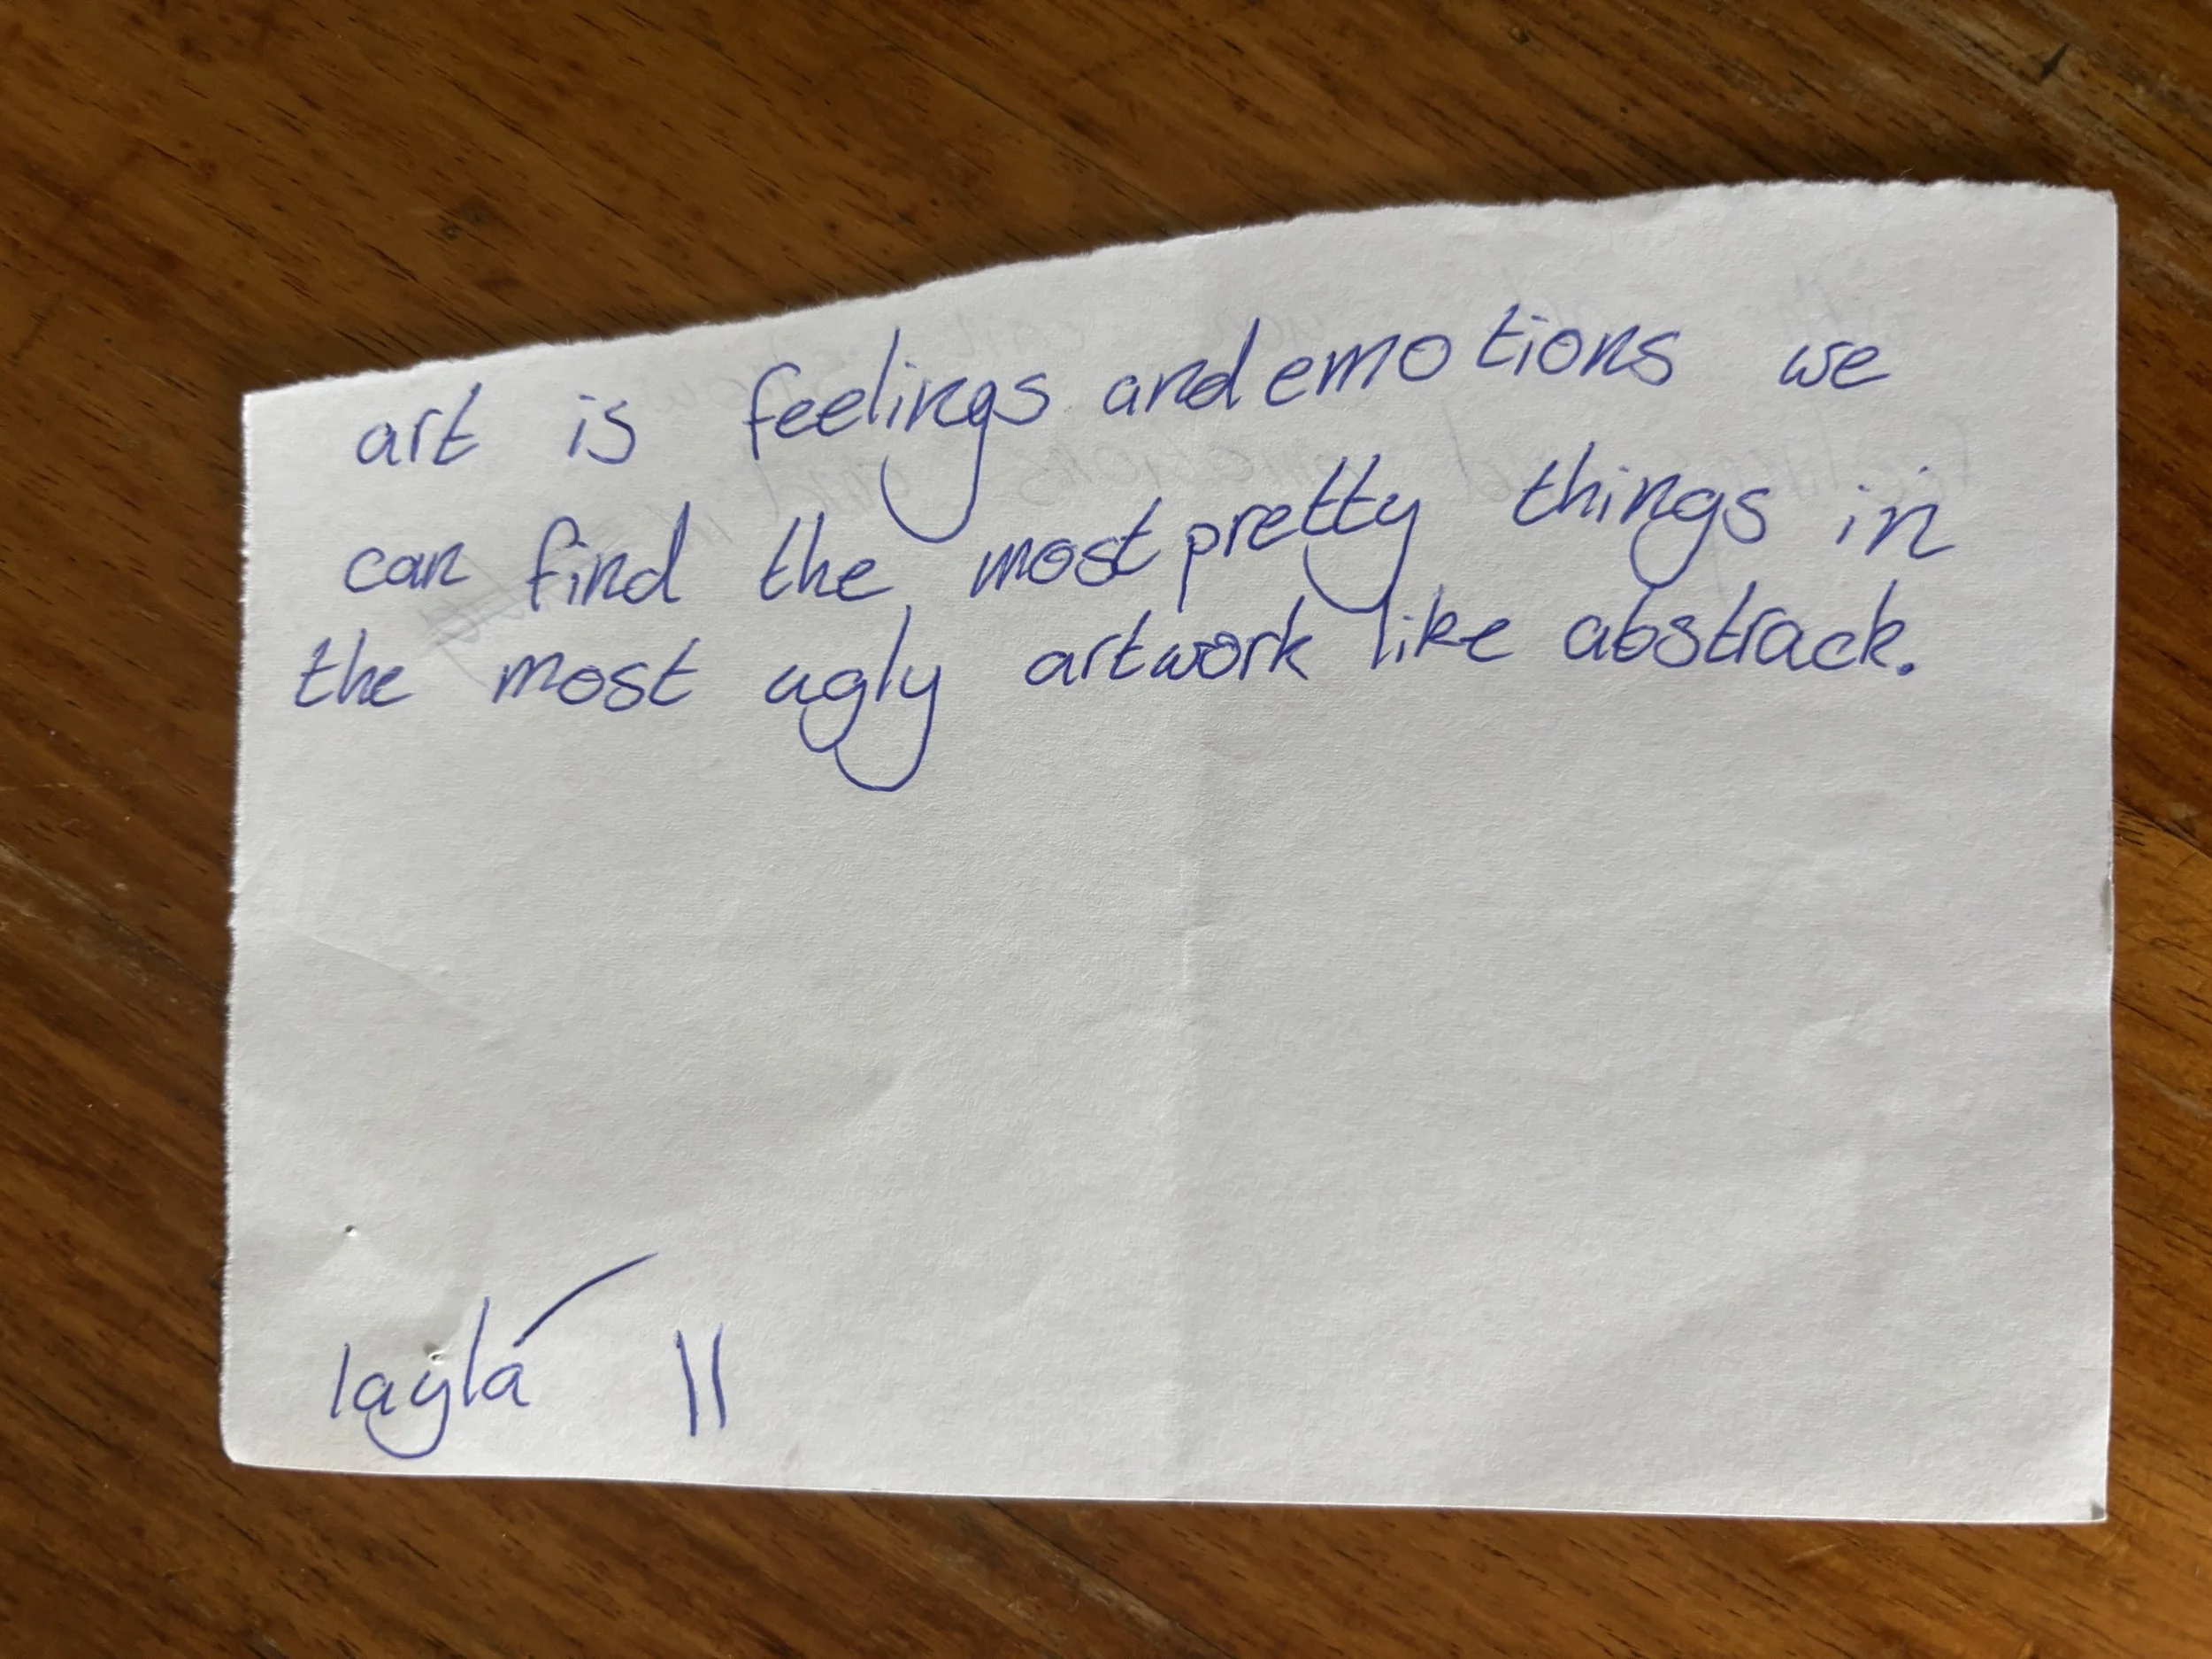 art is feelings and emotions we
can find the most pretty things in
the most ugly artwork like abstrack.
layla 11